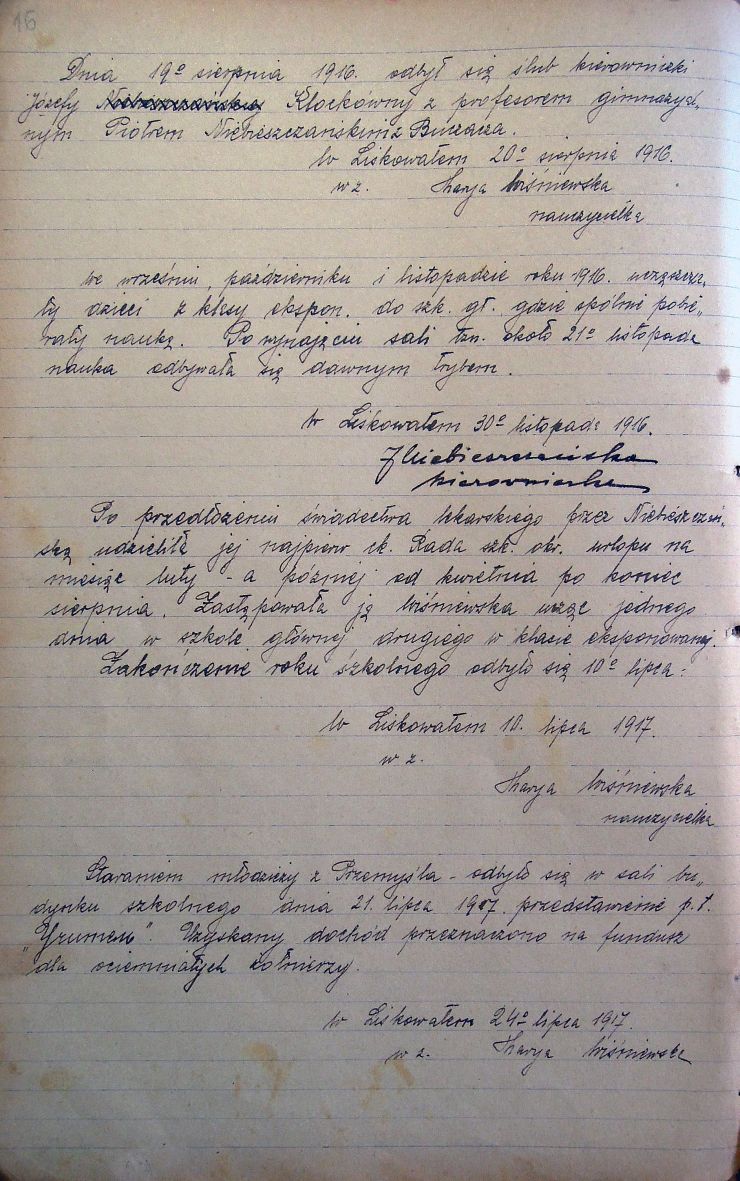 16
Dnia 19º sierpnia 1916. odbył się ślub kierowniczki
Józefy Kłockówny z profesorem gimnazyal„
nym Piotrem Niebieszczańskim z Buczacza.
W Liskowatem 20º sierpnia 1916.
w z. Marya Wiśniewska
nauczycielka
We wrześniu, październiku i listopadzie roku 1916. uczęszcza„
ły dzieci z klasy ekspon. do szk. gł. gdzie spólnie pobie„
rały naukę. Po wynajęciu sali tzn. około 21º listopada
nauka odbywała się dawnym trybem.
W Liskowatem 30º listopada 1916.
JNiebieszczańska
kierowniczka
Po przedłożeniu świadectwa lekarskiego przez Niebieszczań„
ską udzieliła jej najpierw ck. Rada szk. okr. urlopu na
miesiąc luty – a później od kwietnia po koniec
sierpnia. Zastępowała ją Wiśniewska ucząc jednego
dnia w szkole głównej drugiego w klasie eksponowanej.
Zakończenie roku szkolnego odbyło się 10º lipca.
W Liskowatem 10. lipca 1917.
w z.
Marya Wiśniewska
nauczycielka
Staraniem młodzieży z Przemyśla – odbyło się w sali bu„
dynku szkolnego dnia 21. lipca 1917. przedstawienie p. t.
". Uzyskany dochód przeznaczono na fundusz
"dla ociemniałych żołnierzy.
W Liskowatem 24º lipca 1917.
w z. Marya Wiśniewska